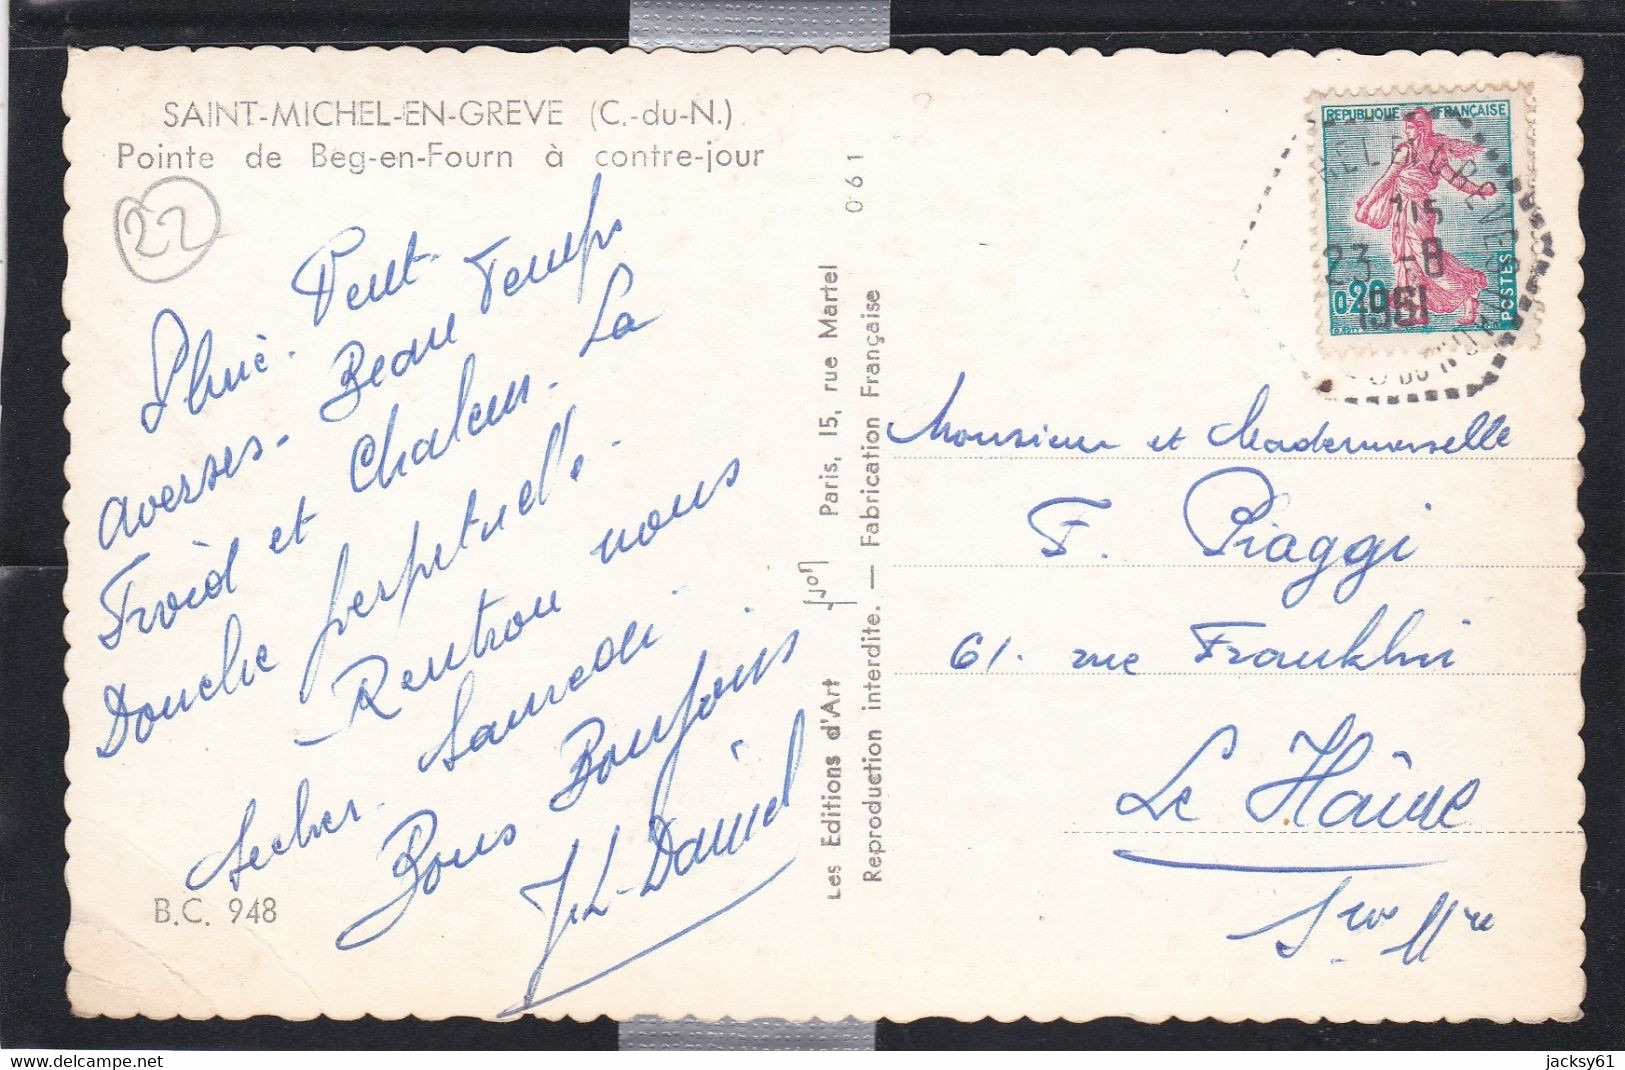 SAINT-MICHEL-EN-GREVE (C.-du-N.)
Pointe de Beg-en-Fourn à contre-jour
22
Pluie. Vent.
averses. Beau Temps
Froid et Chaleur. La
Douche perpétuelle.
– Rentrons nous
sécher Samedi.
Bons Baisers
J.L. Daniel
B.C. 948
Les Editions d'Art Paris, 15, rue Martel 061
Reproduction interdite. — Fabrication Française
REPUBLIQUE FRANÇAISE
0,20
POSTES
23 -8
1961
Monsieur et Mademoiselle
F. Piaggi
61. rue Franklin
Le Hâvre
Sne Mre
jacksy61